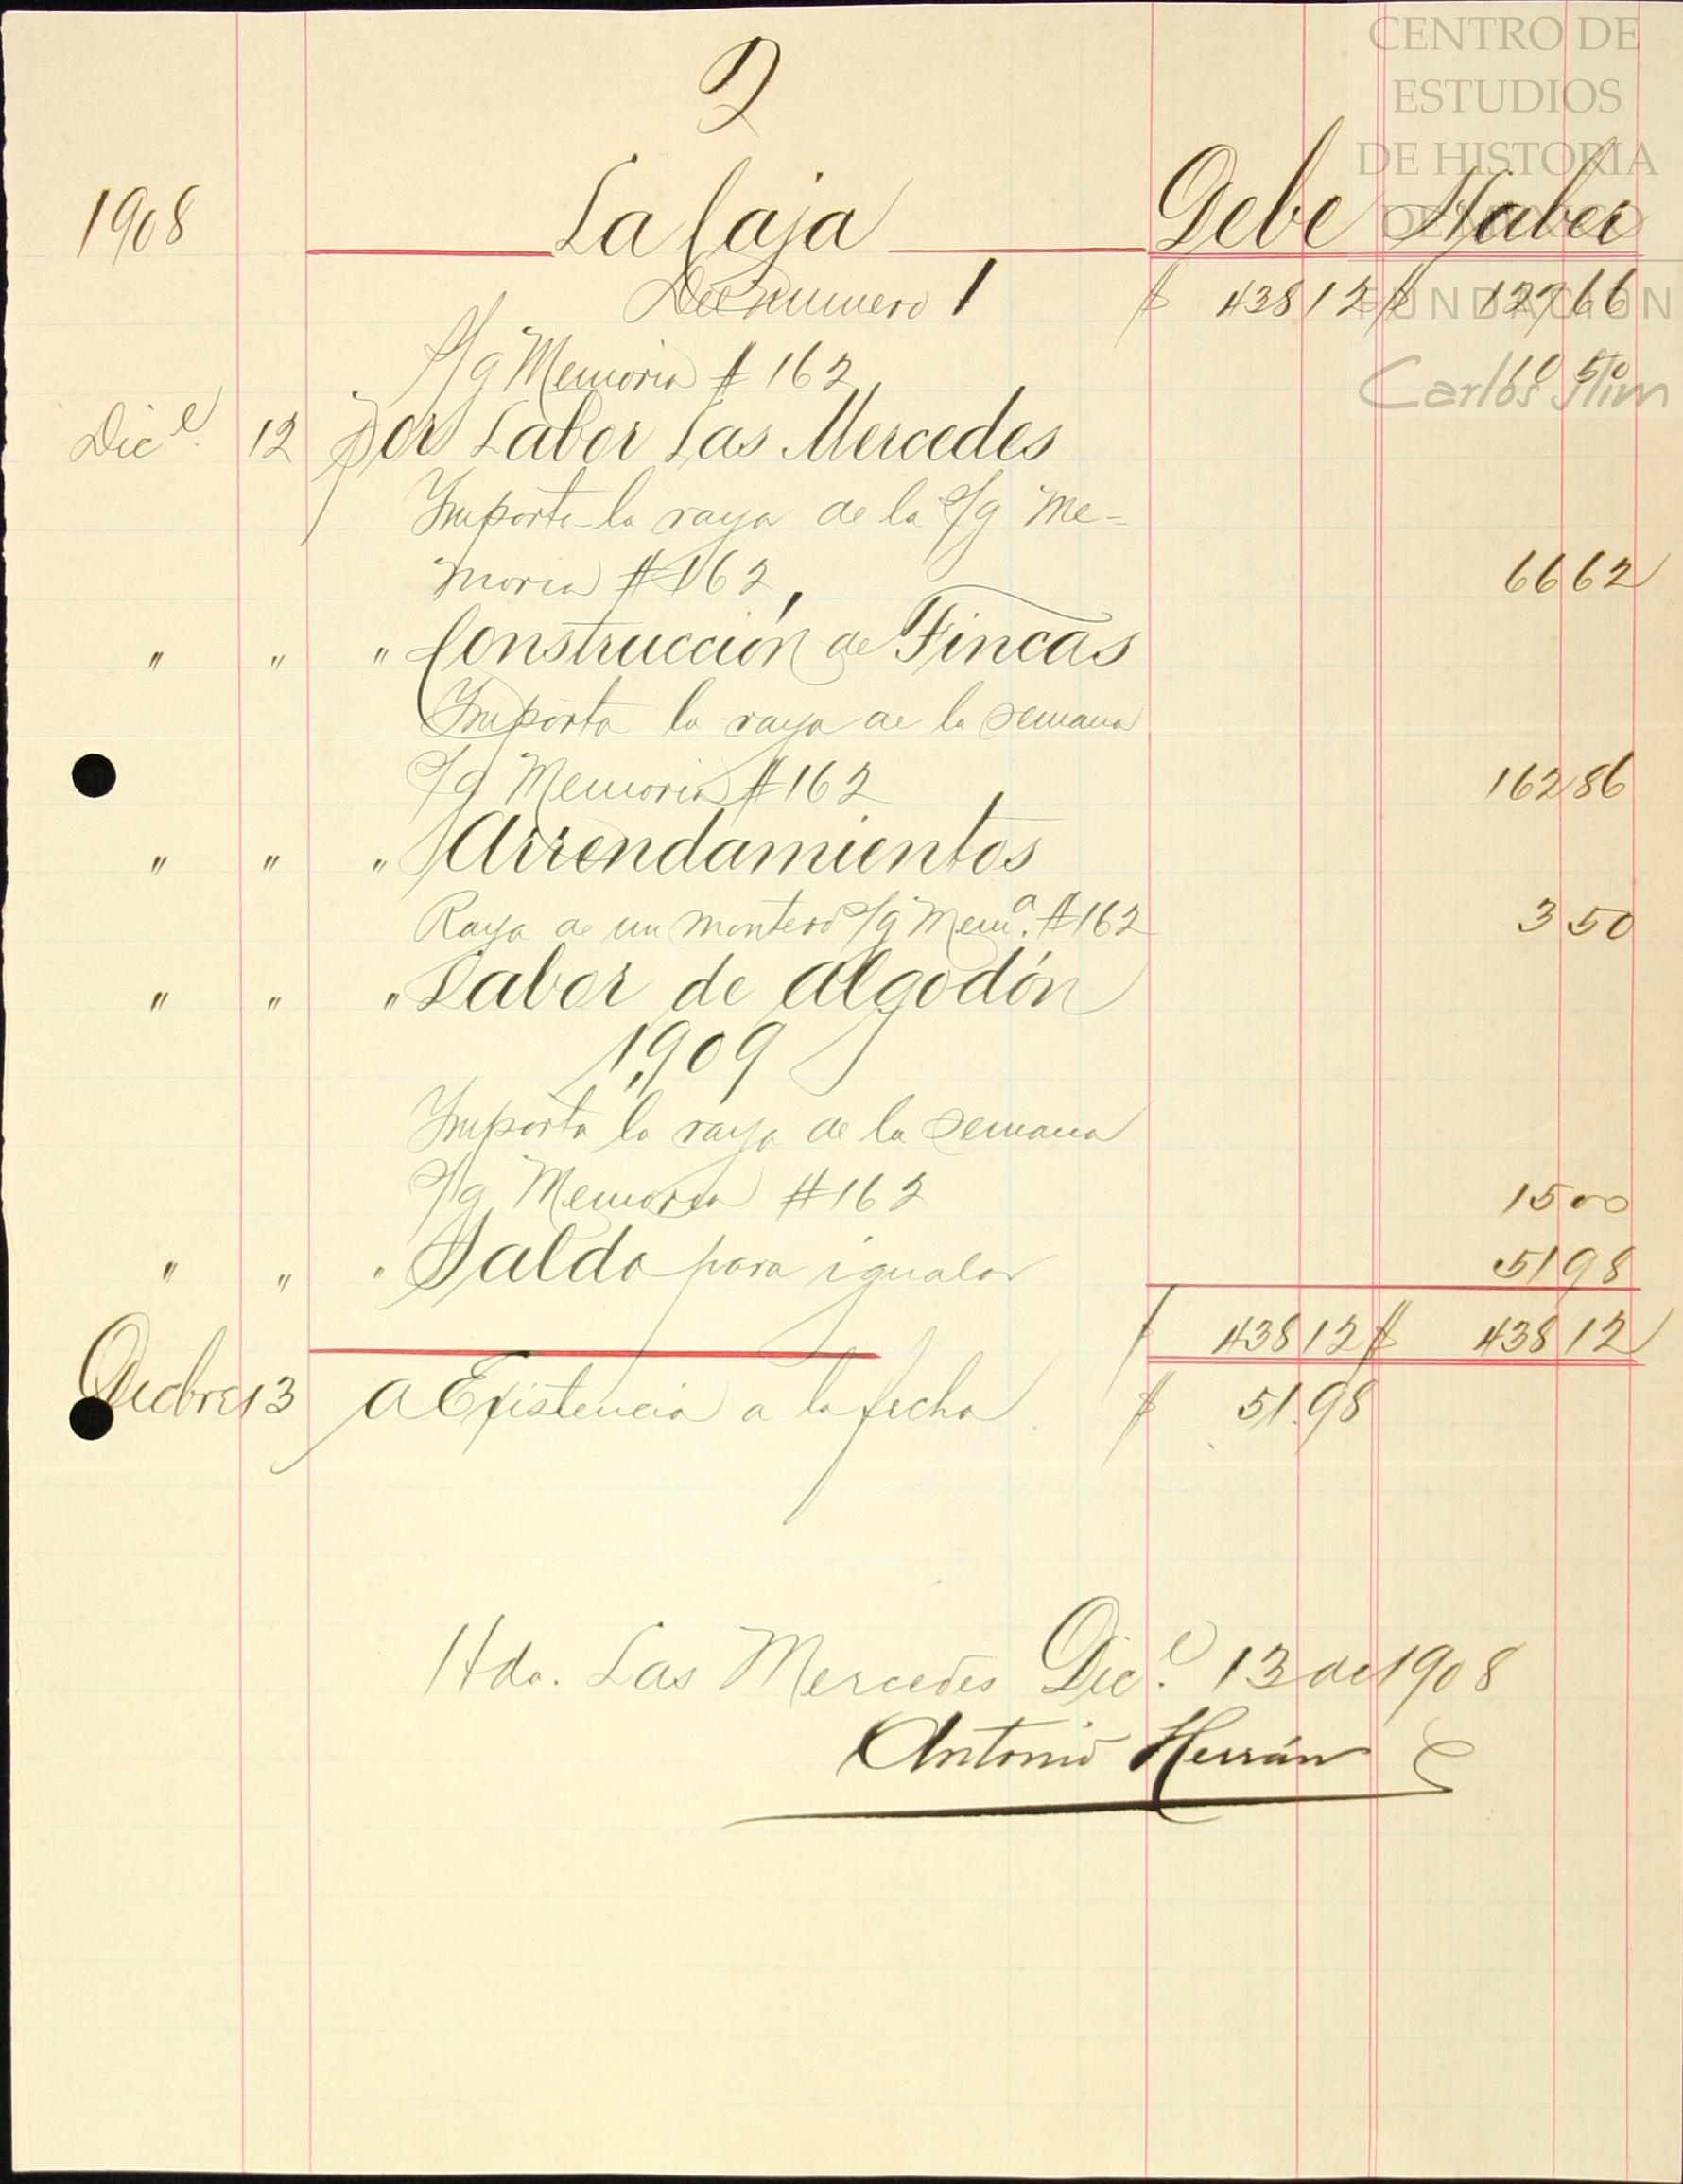 2
CENTRO DE
ESTUDIOS
DE HISTORIA
DE MÉXICO
FUNDACIÓN
Carlos Slim
1908 La Caja Debe Haber
Del número 1 $ 438 12 $ 127 66
S/g Memoria # 162 10 50
Dice. 12 Por Labor Las Mercedes
Importe la raya de la S/g Me=
moria #162, 66 62
" " " Construcción de Fincas
Importa la raya de la semana
S/g Memoria #162 162 86
" " " Arrendamientos
Raya de un montero S/g Mema. #162 3 50
" " " Labor de algodón
1,909
Importa la raya de la semana
S/g Memoria #162 15 00
" " " Saldo para igualar 51 98
$ 438 12 $ 438 12
Dicbre 13 a Existencia a la fecha $ 51 98
Hda. Las Mercedes Dice. 13 de 1908
Antonio Herrán